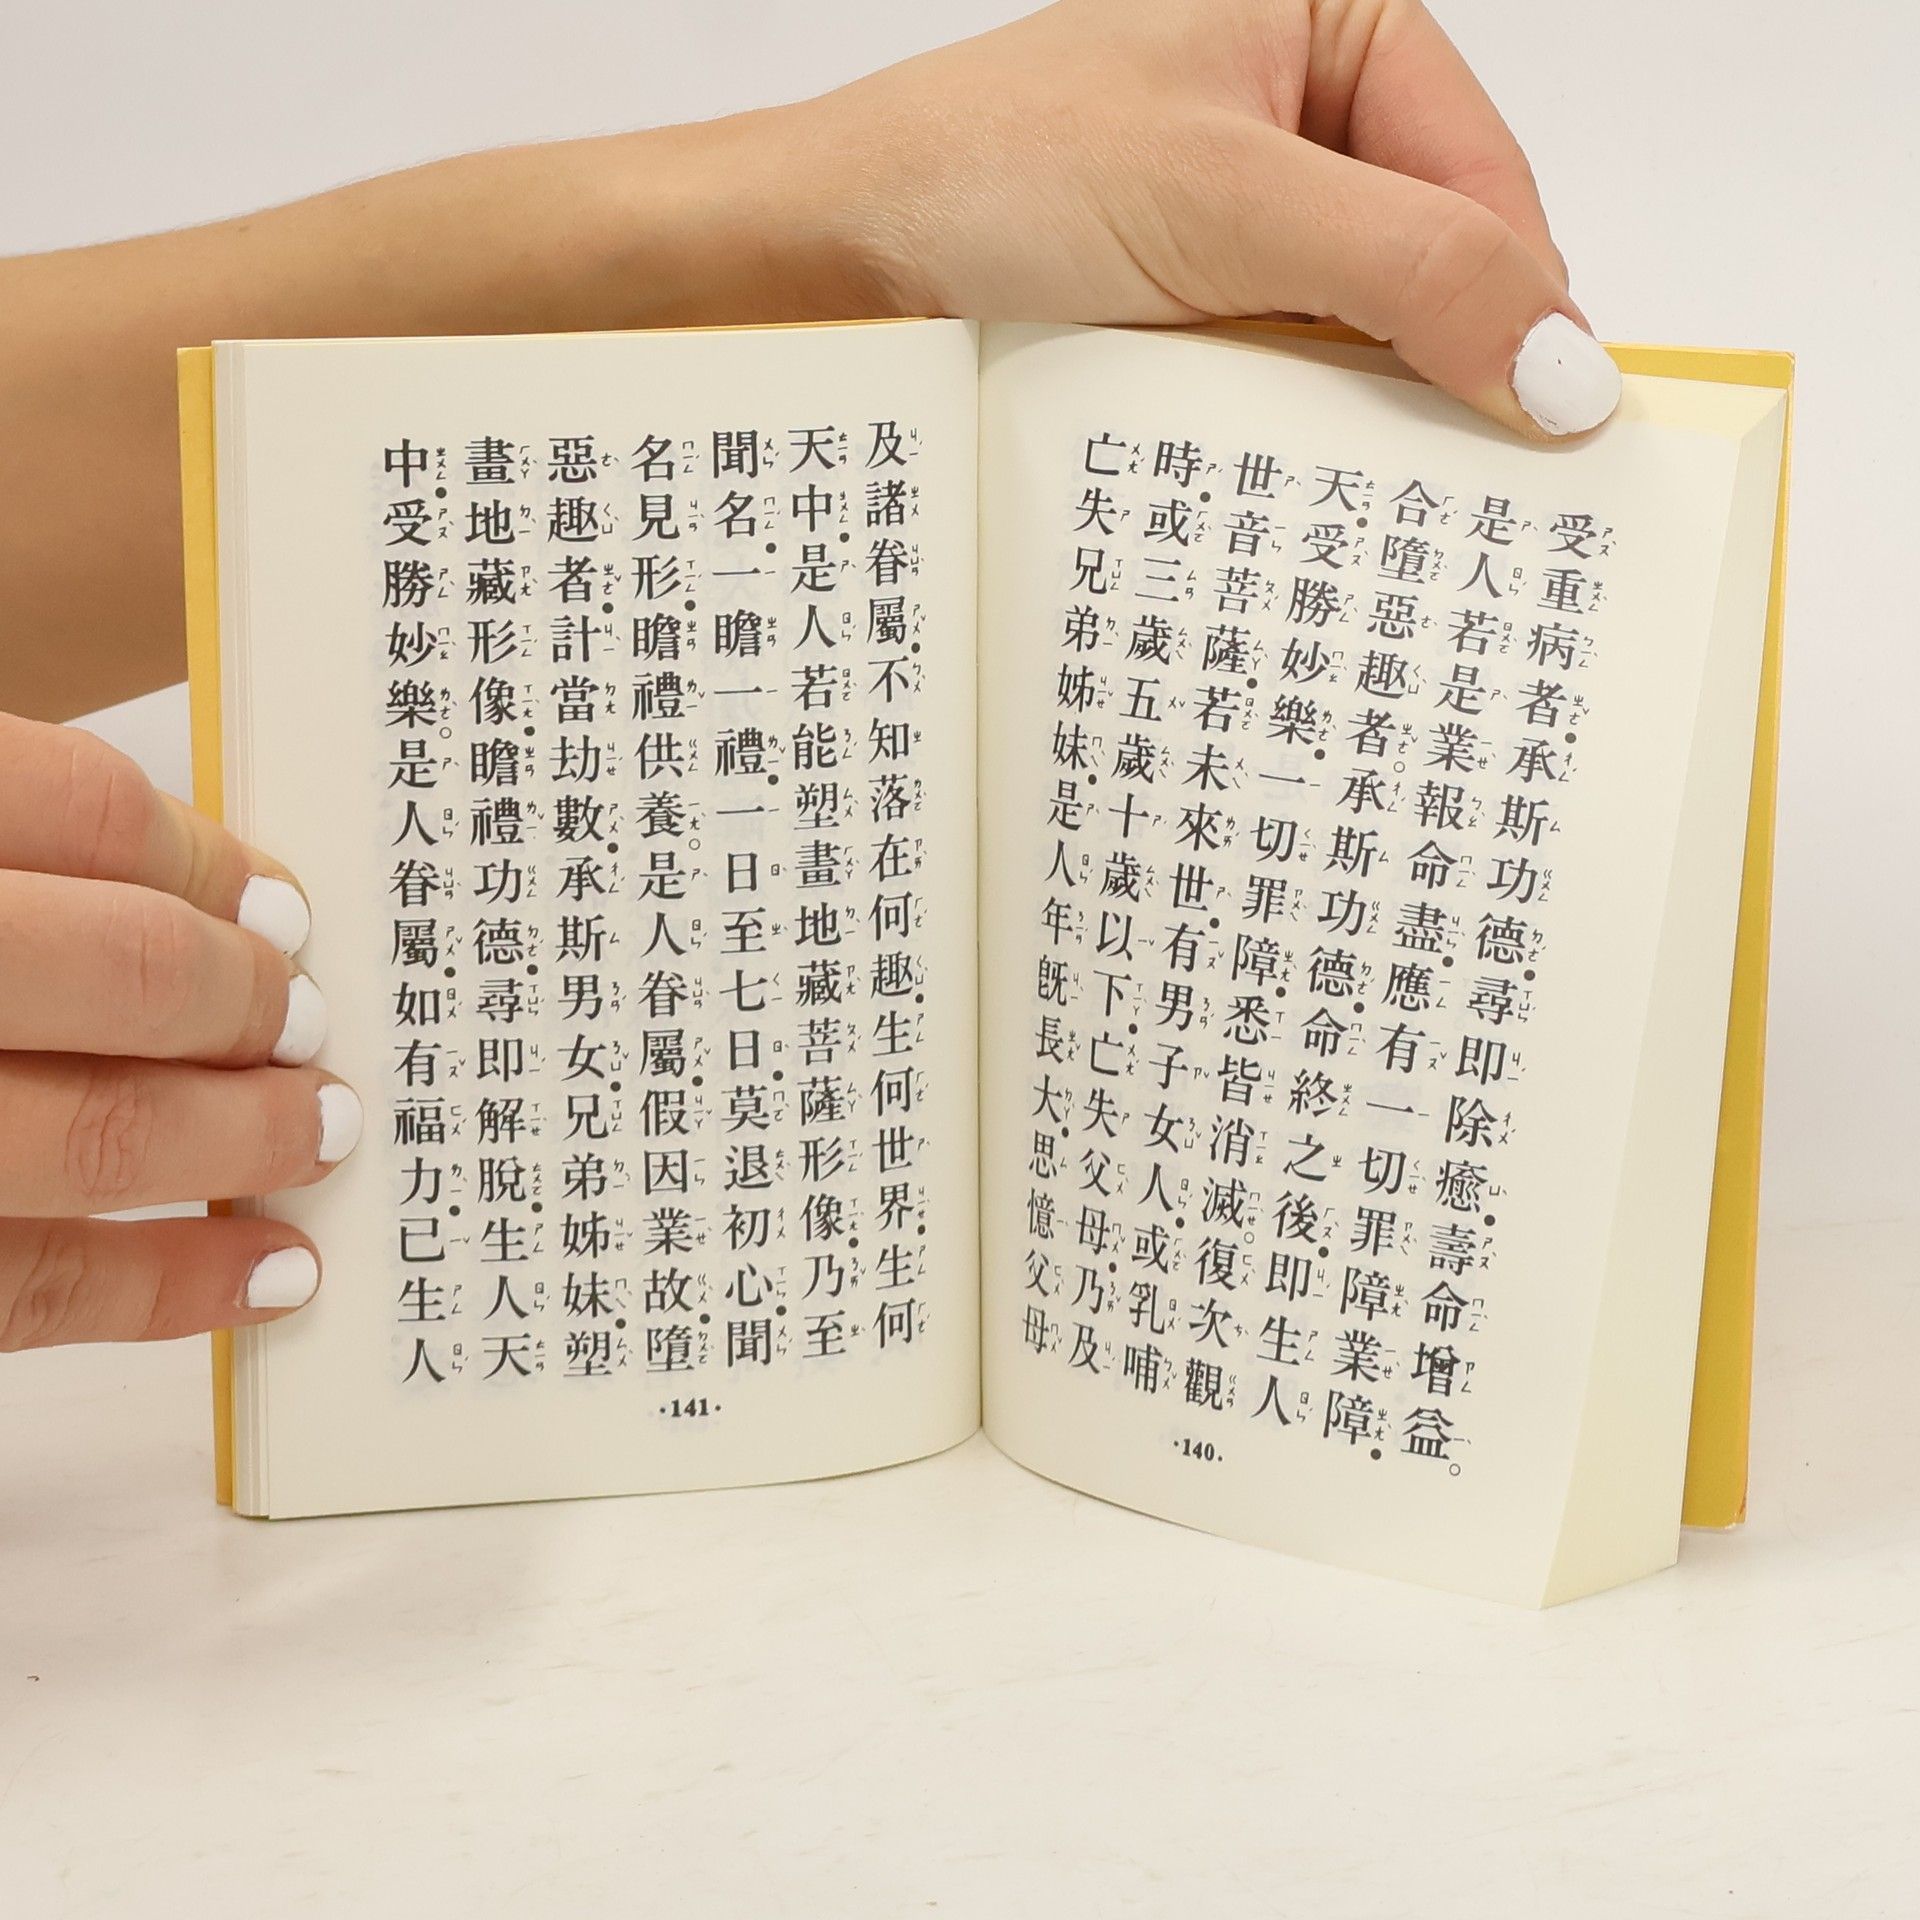 受重病者●承斯功德●尋即除癒●壽命增益。
是人若是業報命盡●應有一切罪障業障●
合墮惡趣者。承斯功德●命終之後●即生人
天●受勝妙樂●一切罪障●悉皆消滅。復次觀
世音菩薩●若未來世●有男子女人●或乳哺
時●或三歲五歲十歲以下●亡失父母●乃及
亡失兄弟姊妹●是人年既長大●思憶父母
·140·
及諸眷屬●不知落在何趣●生何世界●生何
天中●是人若能塑畫地藏菩薩形像●乃至
聞名●一瞻一禮●一日至七日●莫退初心●聞
名見形●瞻禮供養。是人眷屬●假因業故●墮
惡趣者●計當劫數●承斯男女●兄弟姊妹●塑
畫地藏形像●瞻禮功德●尋即解脫●生人天
中●受勝妙樂。是人眷屬●如有福力●已生人
·141·